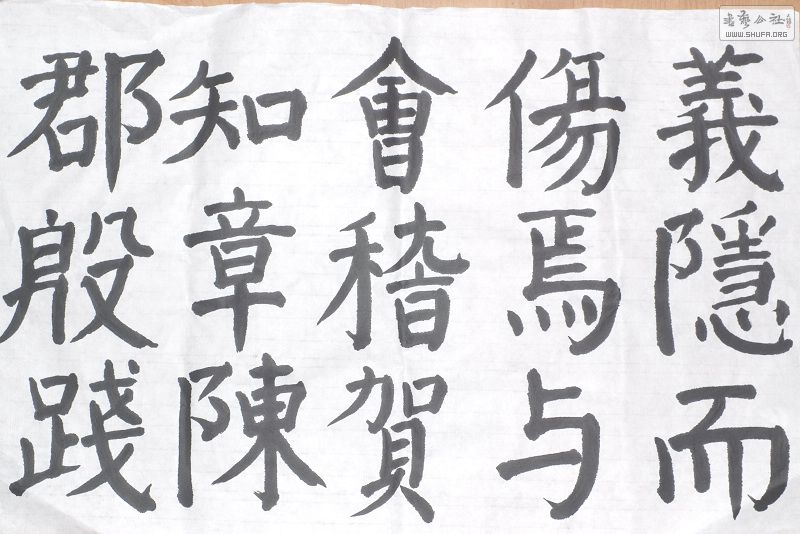 義隱而
傷焉与
會稽賀
知章陳
郡殷踐
书艺公社
WWW.SHUFA.ORG